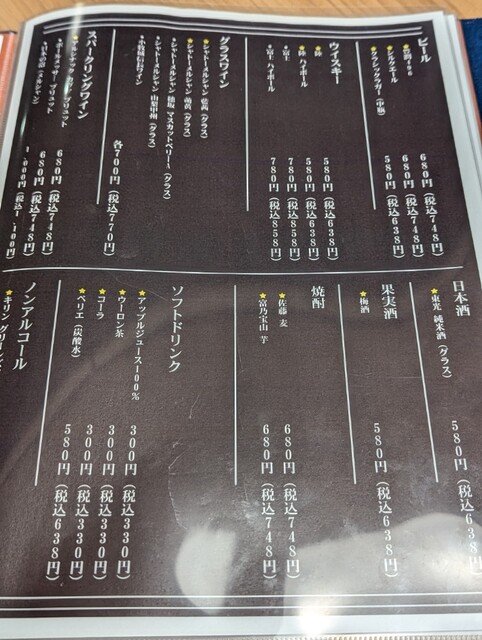 ビール
★豊潤496 680円(税込748円)
★シルクエール 680円(税込748円)
★クラシックラガー(中瓶) 580円(税込638円)
ウイスキー
★陸 580円(税込638円)
★陸 ハイボール 580円(税込638円)
富士 780円(税込858円)
富士 ハイボール 780円(税込858円)
グラスワイン
★シャトーメルシャン 藍茜(グラス)
★シャトーメルシャン 萌黄(グラス)
シャトーメルシャン 穂坂 マスカットベリーA(グラス)
シャトーメルシャン 山梨甲州(グラス)
各700円(税込770円)
スパークリングワイン
ブリュット 680円(税込748円)
ブリュット 680円(税込748円)
(メルシャン) 1,000円(税込1,100円)
日本酒
★東光 純米酒(グラス) 580円(税込638円)
果実酒
★梅酒 580円(税込638円)
焼酎
★佐藤 麦 680円(税込748円)
★富乃宝山 芋 680円(税込748円)
ソフトドリンク
★アップルジュース100% 300円(税込330円)
★ウーロン茶 300円(税込330円)
★コーラ 300円(税込330円)
★ペリエ(炭酸水) 580円(税込638円)
ノンアルコール
★キリン グリーンズ